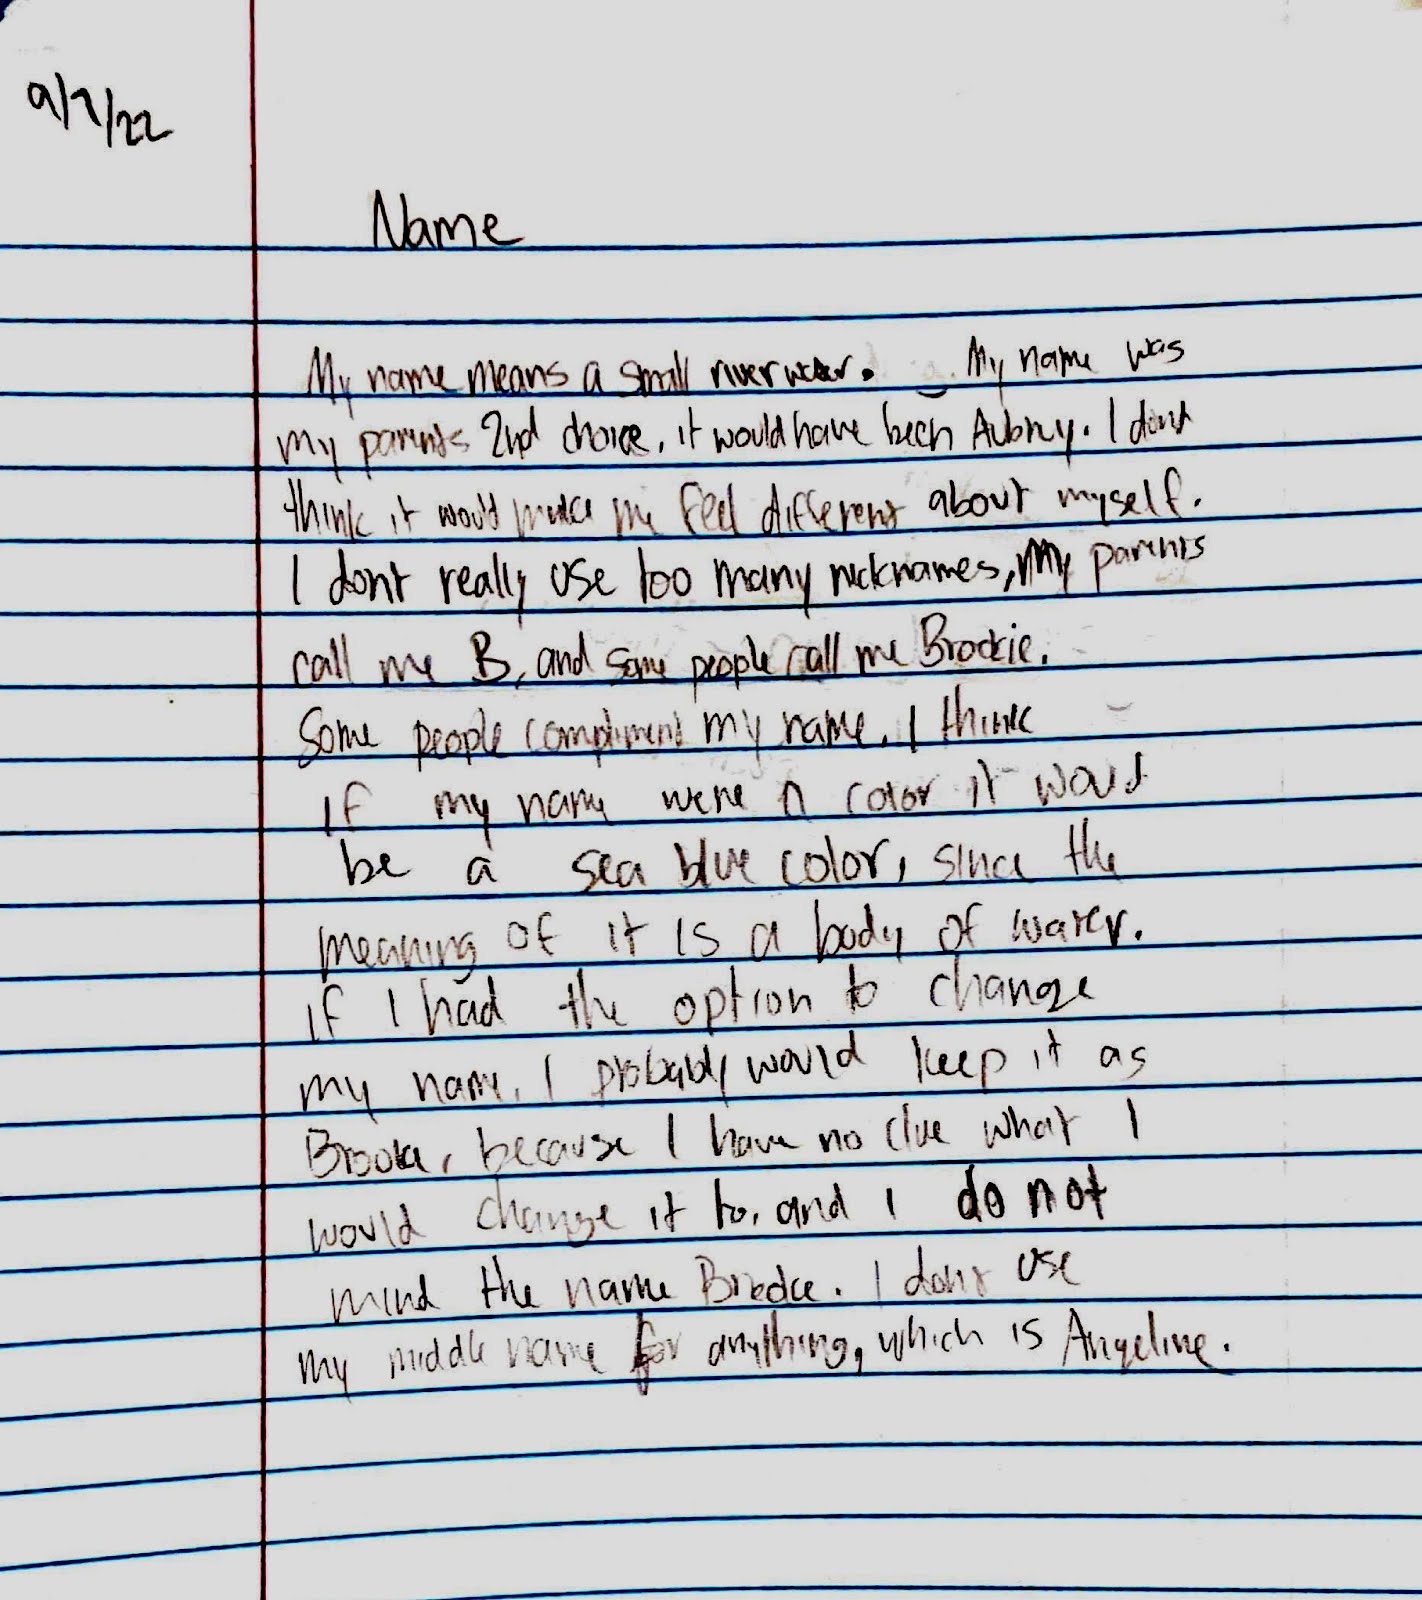 9/7/22
Name
My name means a small river water. My name was
my parents 2nd choice, it would have been Aubrey. I dont
think it would make me feel different about myself.
I dont really use too many nicknames, My parents
call me B, and some people call me Brookie.
Some people compliment my name. I think
if my name were a color it would
be a sea blue color, since the
meaning of it is a body of water.
if I had the option to change
my name, I probably would keep it as
Brooke, because I have no clue what I
would change it to, and I do not
mind the name Brooke. I dont use
my middle name for anything, which is Angeline.